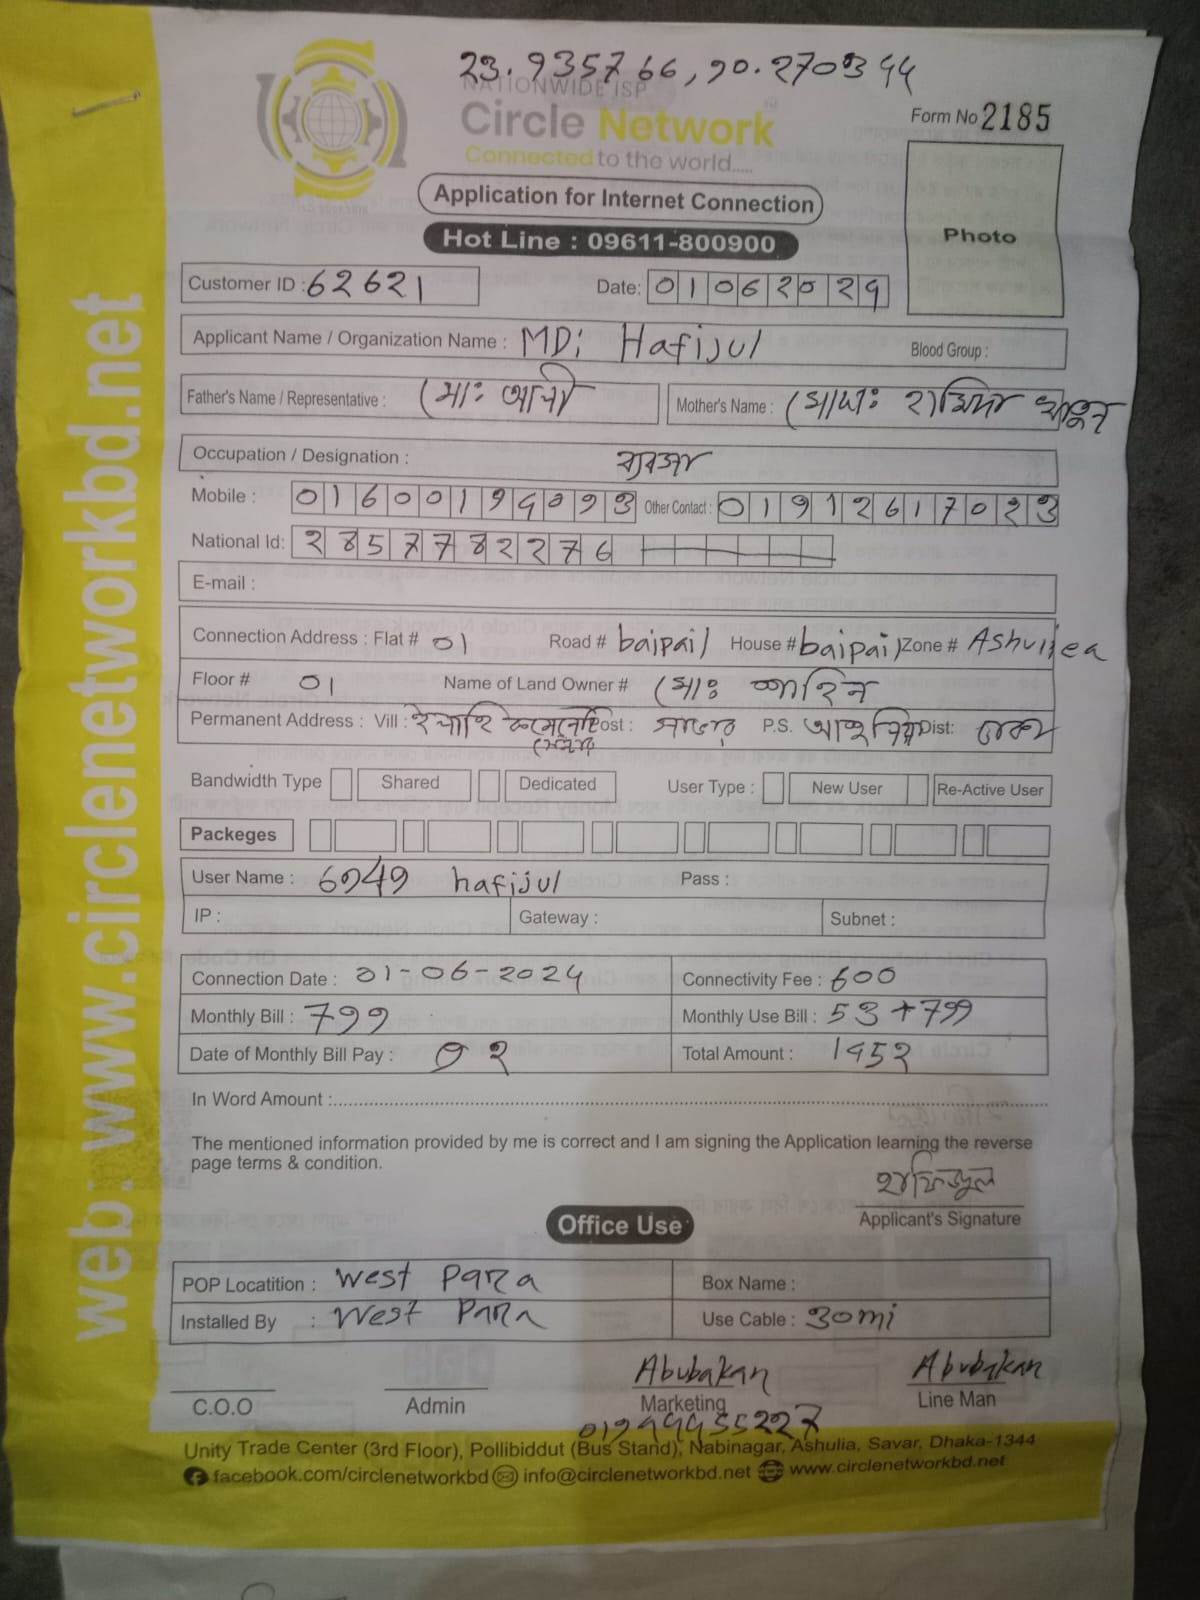 23.935766,90.270344
NATIONWIDE iSP
Circle Network
Connected to the world.....
Form No 2185
Application for Internet Connection
Photo
Hot Line : 09611-800900
Customer ID : 62621 Date: 01062024
Applicant Name / Organization Name : MD: Hafijul Blood Group :
Father's Name / Representative : মোঃ আলী Mother's Name : মোছাঃ হামিদা খাতুন
Occupation / Designation : ব্যবসা
Mobile : Other Contact : 01912617023
National Id: 2857782276
E-mail :
Connection Address : Flat # 01 Road # baipail House # baipail Zone # Ashuliea
Floor # 01 Name of Land Owner # মোঃ শাহিন
Permanent Address : Vill : Post : সাভার P.S. আশুলিয়া Dist: ঢাকা
Bandwidth Type Shared Dedicated User Type : New User Re-Active User
Packeges
User Name : hafijul Pass :
IP : Gateway : Subnet :
Connection Date : 01-06-2024 Connectivity Fee : 600
Monthly Bill : 799 Monthly Use Bill : 53+799
Date of Monthly Bill Pay : 02 Total Amount : 1452
In Word Amount :
The mentioned information provided by me is correct and I am signing the Application learning the reverse
page terms & condition.
হাফিজুল
Applicant's Signature
Office Use
POP Locatition : West Para Box Name :
Installed By : West Para Use Cable : 30mi
Abubakar Abubakar
C.O.O Admin Marketing Line Man
Unity Trade Center (3rd Floor), Pollibiddut (Bus Stand), Nabinagar, Ashulia, Savar, Dhaka-1344
facebook.com/circlenetworkbd info@circlenetworkbd.net www.circlenetworkbd.net
web: www.circlenetworkbd.net